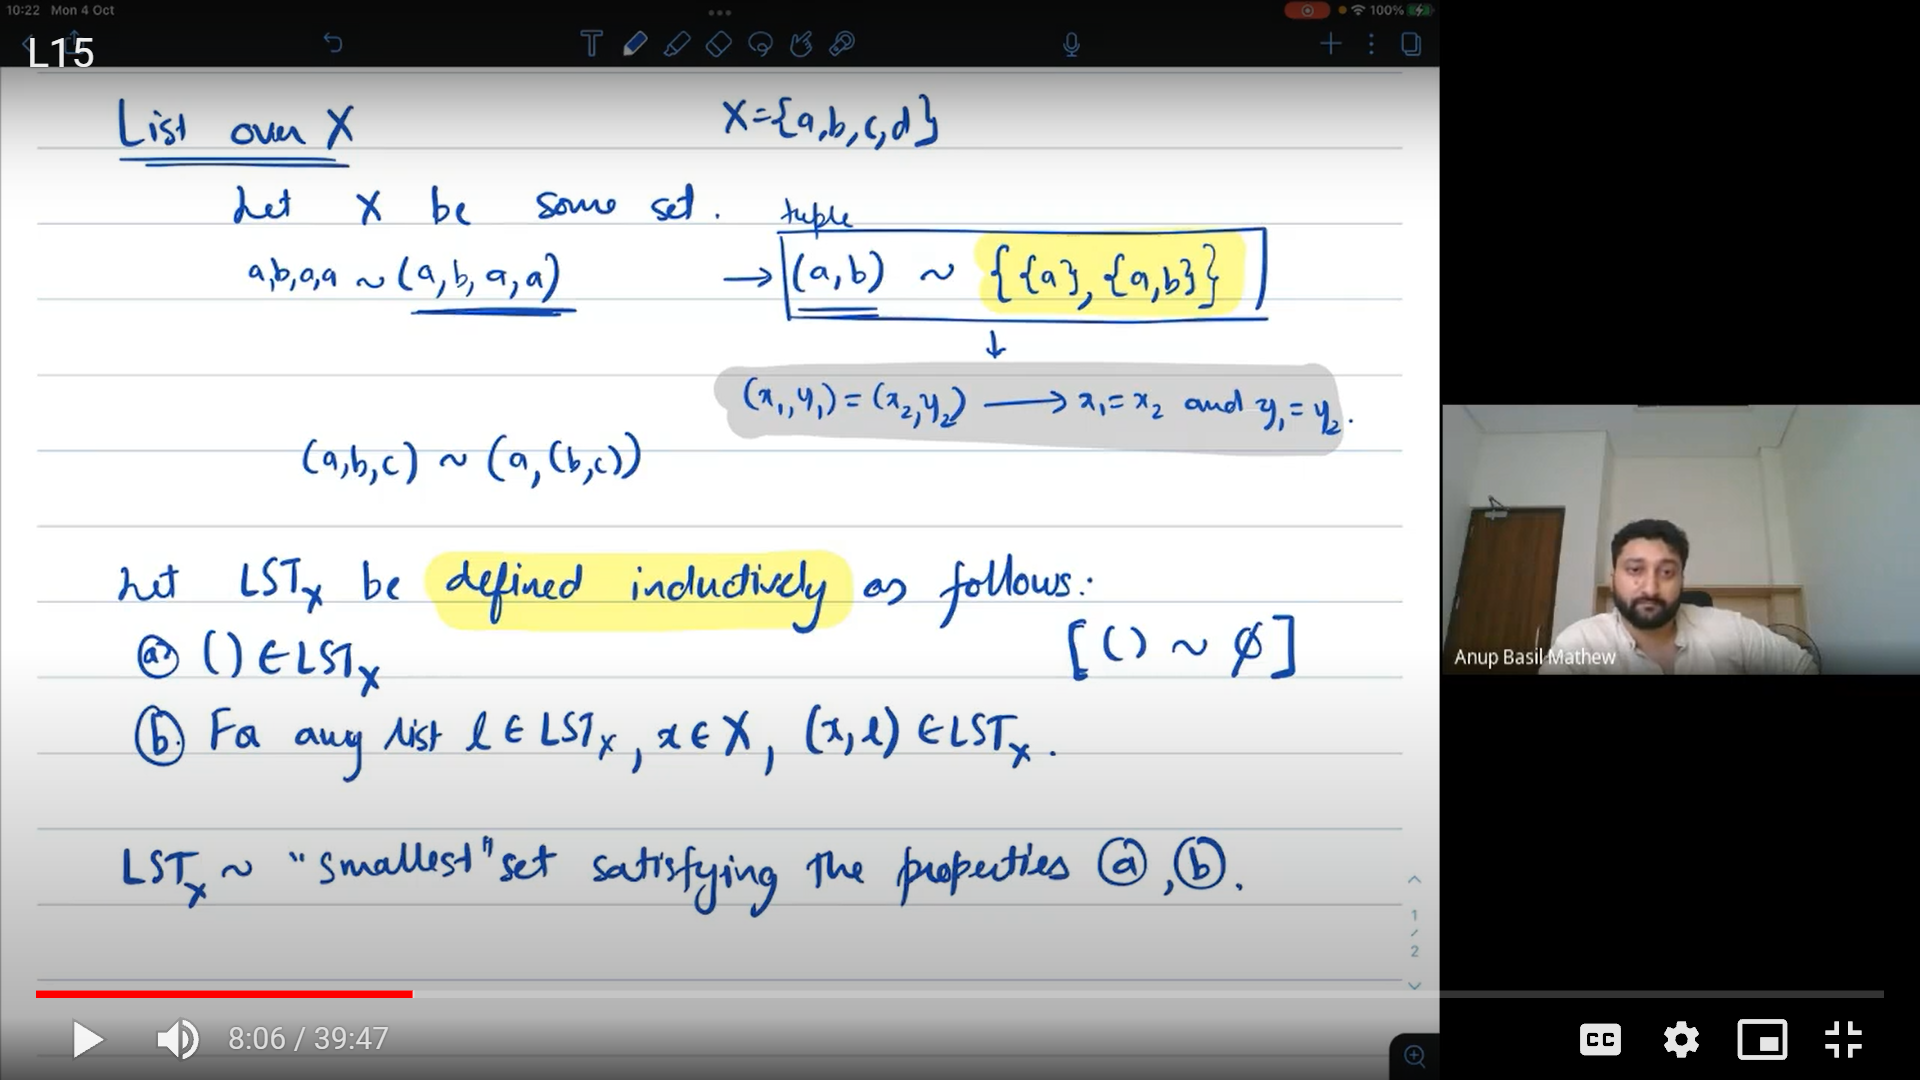 10:22 Mon 4 Oct
100%
L15
List over X
X={a,b,c,d}
Let X be some set.
tuple
a,b,a,a ~ (a,b,a,a)
→ (a,b) ~ {{a},{a,b}}
↓
(x₁,y₁) = (x₂,y₂) ⟶ x₁=x₂ and y₁=y₂.
(a,b,c) ~ (a,(b,c))
Let LSTₓ be defined inductively as follows:
ⓐ () ∈ LSTₓ
[() ~ ∅]
ⓑ For any list l ∈ LSTₓ, x ∈ X, (x,l) ∈ LSTₓ.
LSTₓ ~ "smallest" set satisfying the properties ⓐ, ⓑ.
1
/
2
Anup Basil Mathew
8:06 / 39:47
CC